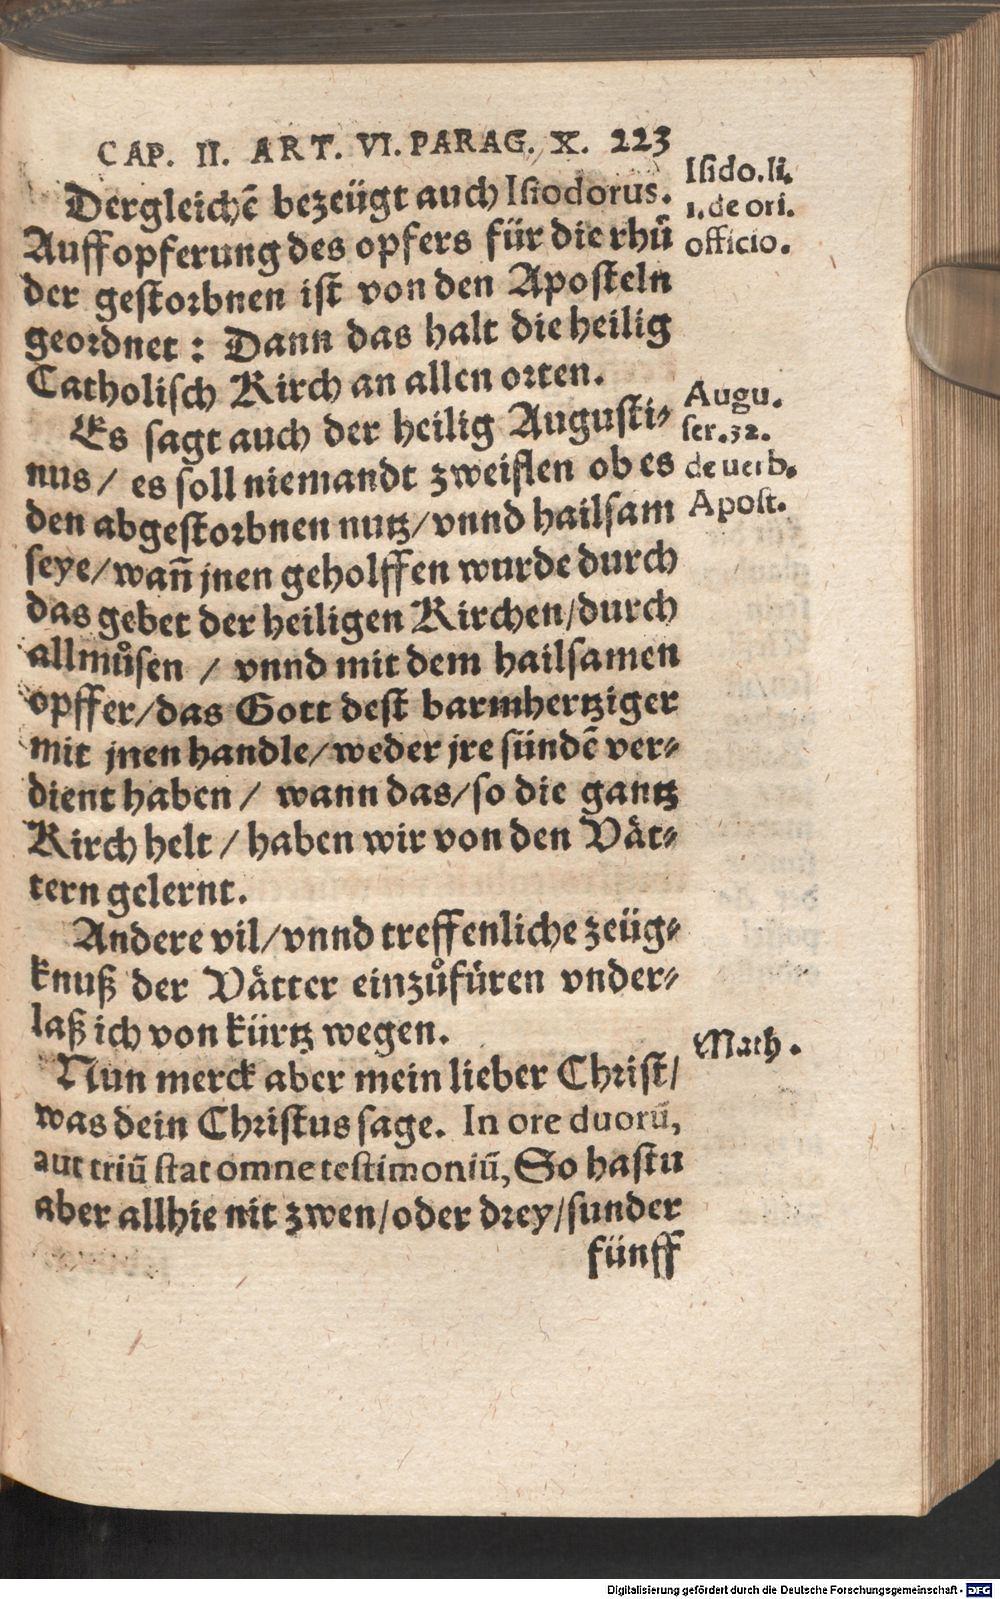 CAP. II. ART. VI. PARAG. X. 223
Dergleichẽ bezeügt auch Isiodorus.
Auffopferung des opfers für die rhů
der gestorbnen ist von den Aposteln
geordnet : Dann das halt die heilig
Catholisch Kirch an allen orten.
Isido.li.
1.de ori.
officio.
Es sagt auch der heilig Augusti⸗
nus / es soll niemandt zweiflen ob es
den abgestorbnen nutz/vnnd hailsam
seye/wañ jnen geholffen wurde durch
das gebet der heiligen Kirchen/durch
allmůsen / vnnd mit dem hailsamen
opffer/das Gott dest barmhertziger
mit jnen handle/weder jre sündẽ ver⸗
dient haben / wann das/so die gantz
Kirch helt / haben wir von den Vät⸗
tern gelernt.
Augu.
ser.32.
de uerb.
Apost.
Andere vil/vnnd treffenliche zeüg⸗
knuß der Vätter einzůfüren vnder⸗
laß ich von kürtz wegen.
Nun merck aber mein lieber Christ/
was dein Christus sage. In ore duorũ,
aut triũ stat omne testimoniũ, So hastu
aber allhie nit zwen/oder drey/sunder
fünff
Math.
Digitalisierung gefördert durch die Deutsche Forschungsgemeinschaft - DFG